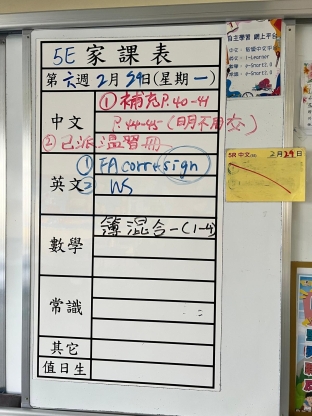 5E 家課表
第六週2月29日(星期一)
中文
①補充P.40-41
P.44-45(明不用交)
②已派溫習冊
英文
①FA corr+sign
②WS
數學
簿混合一(1-4)
常識
其它
值日生
自主學習 網上平台
5R 中文
2月29日